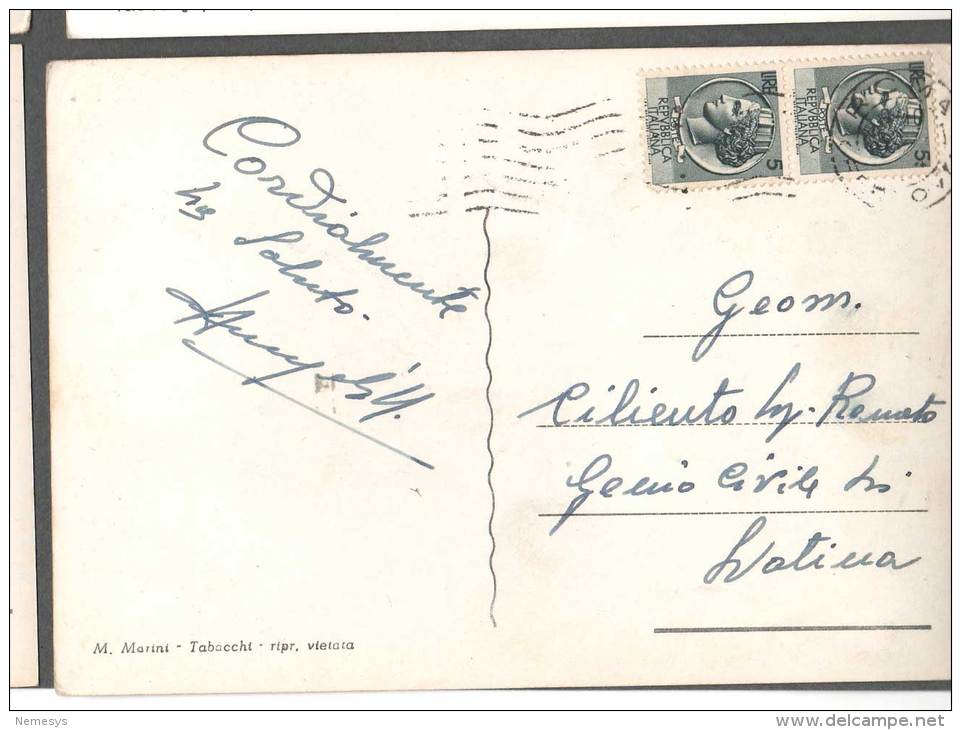 Cordialmente
La Saluto.
REPVBBLICA
ITALIANA
POSTE
LIRE
5
REPVBBLICA
ITALIANA
POSTE
LIRE
5
Geom.
Ciliento Sig. Renato
Genio Civile di
Latina
M. Marini - Tabacchi - ripr. vietata
Nemesys
delcampe.net